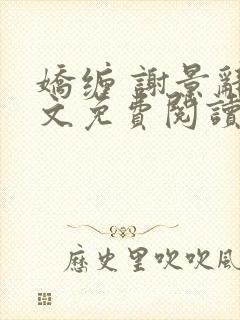 嬌缠 謝景辭
文免費閱讀
歷史里吹吹風